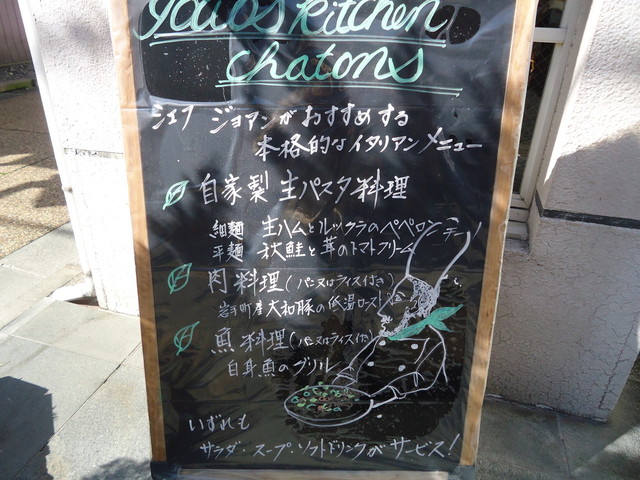 kitchen
chatons
シェフ ジョアンがおすすめする
本格的なイタリアンメニュー
自家製 生パスタ料理
細麺 生ハムとルッコラのペペロンチーノ
平麺 秋鮭と茸のトマトクリーム
肉料理(パン又はライス付き)
岩手町産大和豚の低温ロースト
魚料理(パン又はライス付)
白身魚のグリル
いずれも
サラダ・スープ・ソフトドリンクがサービス!